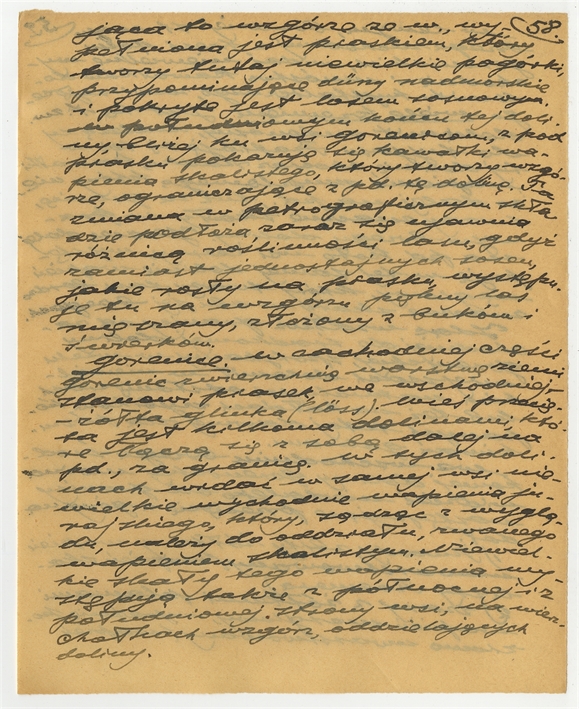 58.
jąca to wzgórze ze w., wy
pełniona jest piaskiem, który
tworzy tutaj niewielkie pagórki,
przypominające diuny nadmorskie
i pokryte jest lasem sosnowym.
W południowym końcu tej doli
ny, bliżej ku wsi Gorenicom, z pod
piasku pokazują się kawałki wa-
pienia skalistego, który tworzy wzgó-
rza, ograniczające z pd. tę dolinę. Ta
zmiana w petrograficznym skła
dzie podłoża zaraz się ujawnia
różnicą roślinności lasu, gdyż
zamiast jednostajnych sosen,
jakie rosły na piasku, występu-
je tu na wzgórzu piękny las
mieszany, złożony z buków i
świerków.
Gorenice, w zachodniej części
Gorenic zwierzchnią warstwę ziemi
stanowi piasek, we wschodniej-
-żółta glinka ("löss). Wieś przecię-
ta jest kilkoma dolinami, któ-
re łączą się z sobą dalej na
pd., za granicą. W tych doli-
nach widać w samej wsi nie-
wielkie wychodnie wapienia ju-
rajskiego, który, sądząc z wyglą-
du, należy do oddziału, zwanego
wapieniem skalistym. Niewiel-
kie skały tego wapienia wy-
stępują także z północnej i z
południowej strony wsi, na wierz-
chołkach wzgórz, oddzielających
doliny.